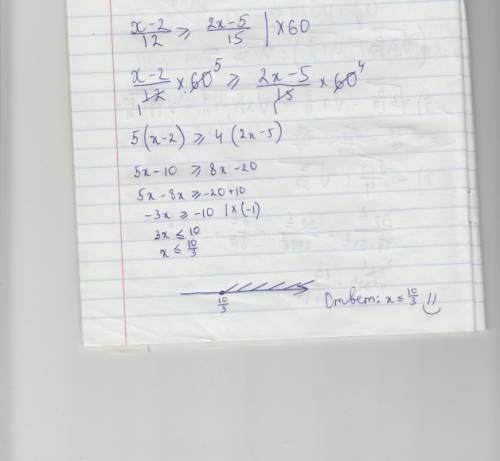 x-2/12 ⩾ 2x-5/15 | ×60
x-2/12 × 60⁵ ⩾ 2x-5/15 × 60⁴
5(x-2) ⩾ 4(2x-5)
5x-10 ⩾ 8x-20
5x-8x ⩾ -20+10
-3x ⩾ -10 | ×(-1)
3x ≤ 10
x ≤ 10/3
10/3
Ответ: x ≤ 10/3